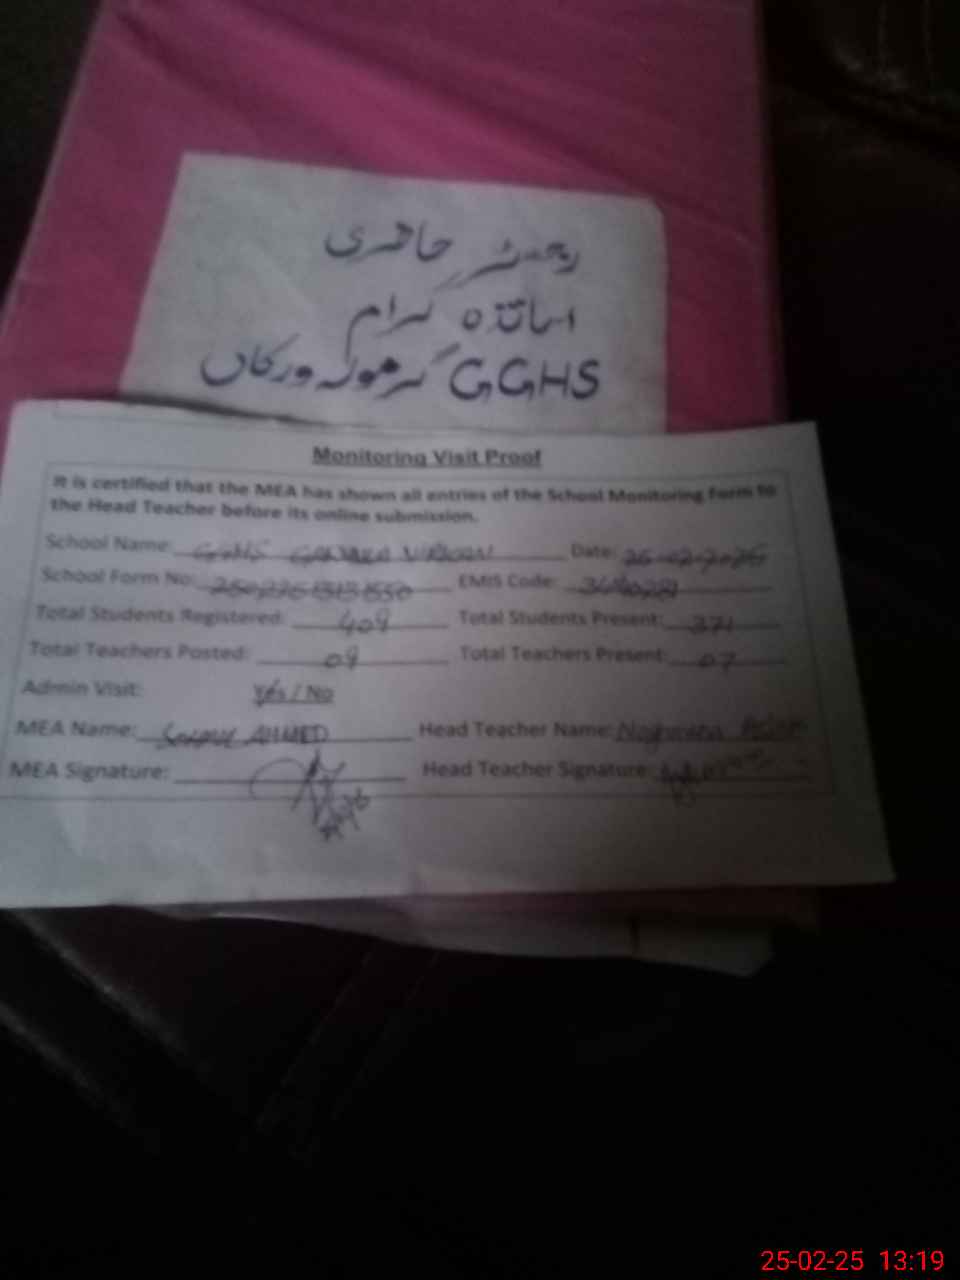 رجسٹر حاضری
اساتذہ کرام
GGHS گرمولہ ورکاں
Monitoring Visit Proof
It is certified that the MEA has shown all entries of the School Monitoring Form to
the Head Teacher before its online submission.
School Name: GGHS Date:
School Form No: EMIS Code:
Total Students Registered: 409 Total Students Present: 371
Total Teachers Posted: 09 Total Teachers Present: 07
Admin Visit: Yes / No
MEA Name: AHMED Head Teacher Name:
MEA Signature: Head Teacher Signature:
25-02-25 13:19